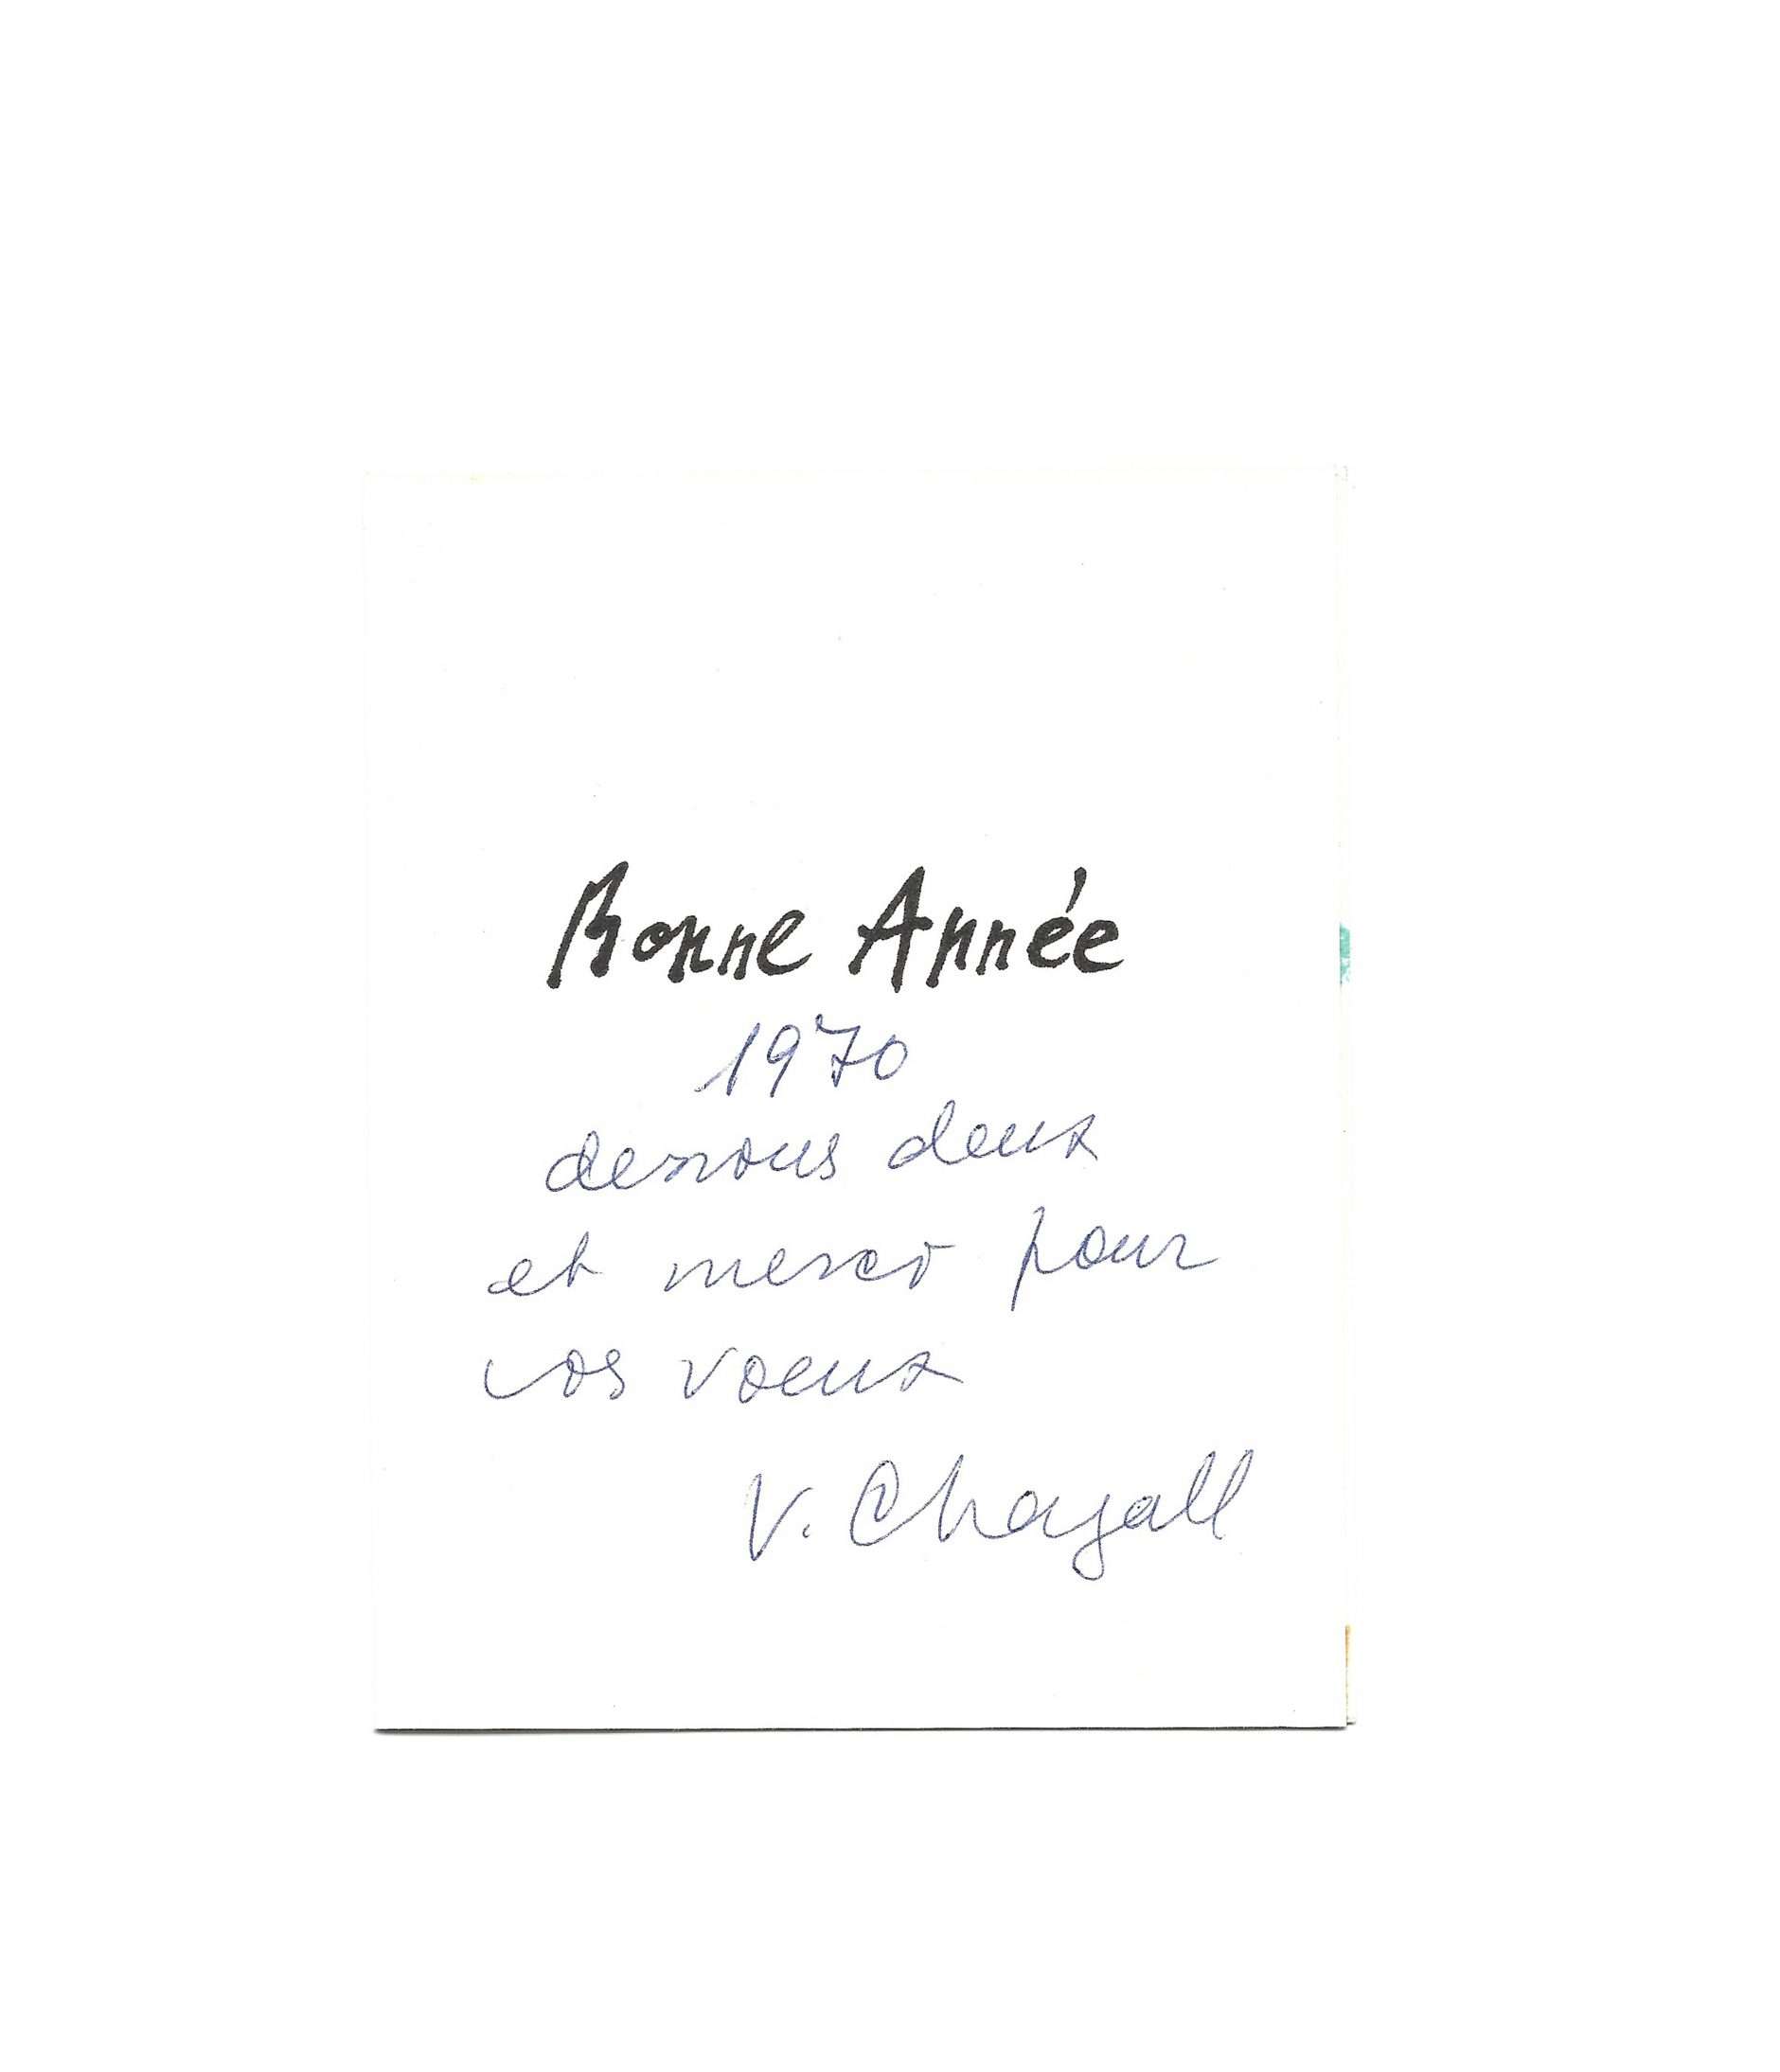 Bonne Année
1970
de nous deux
et merci pour
vos voeux
V. Chagall